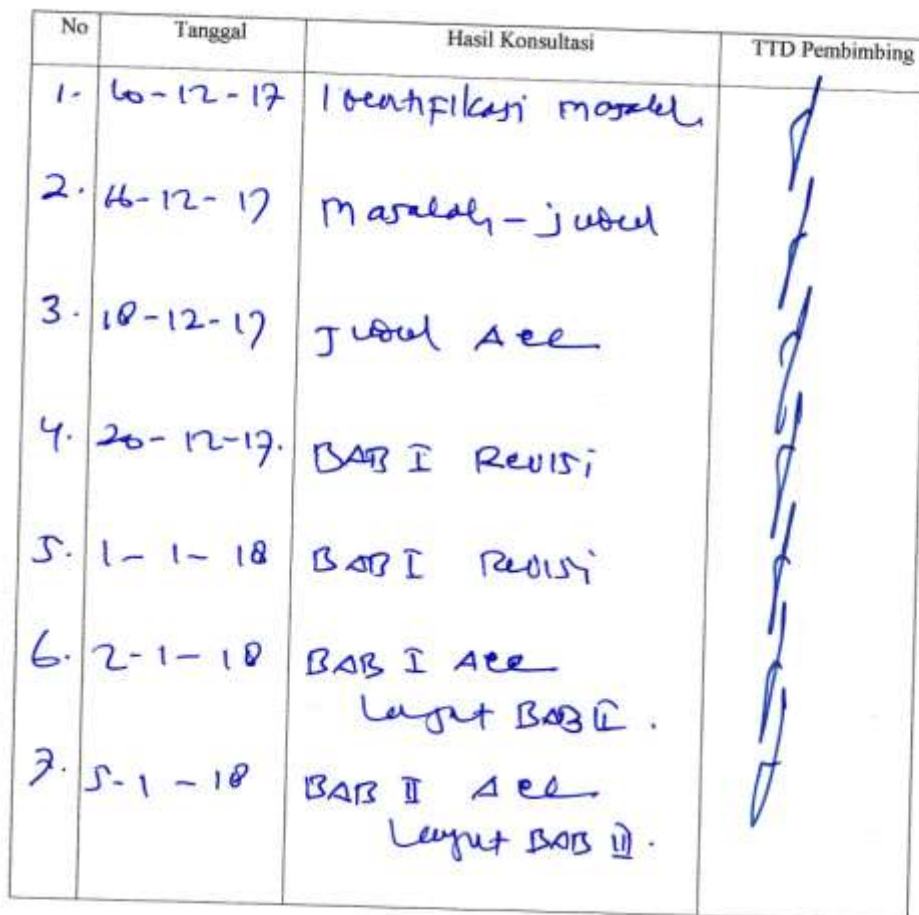 No Tanggal Hasil Konsultasi TTD Pembimbing
1. 10-12-17 Identifikasi masalah
2. 16-12-17 Masalah - judul
3. 18-12-17 Judul Acc
4. 20-12-17. BAB I Revisi
5. 1-1-18 BAB I Revisi
6. 2-1-18 BAB I Acc
Lanjut BAB II.
7. 5-1-18 BAB II Acc
Lanjut BAB III.